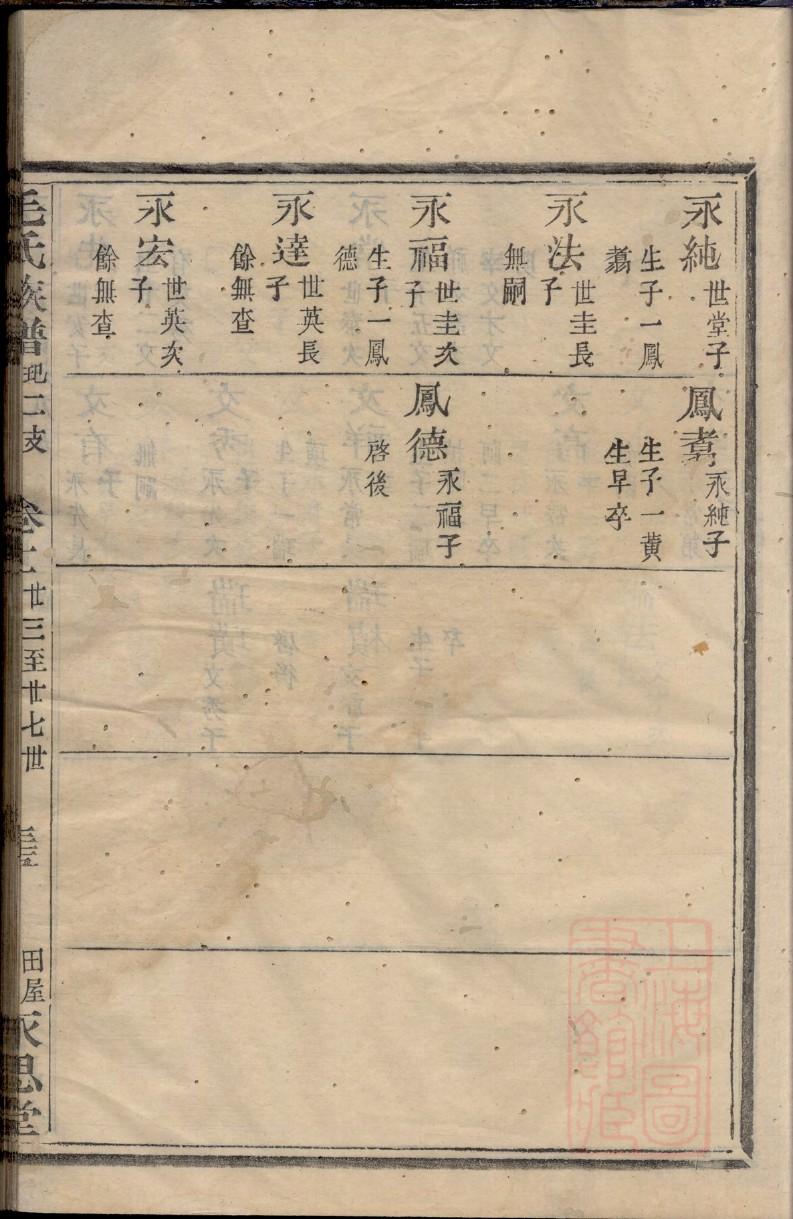 永純世堂子
生子一鳳
翥
永法世圭長
子
無嗣
永福世圭次
子
生子一鳳
德
永達世英長
子
餘無查
永宏世英次
子
餘無查
鳳翥永純子
生子一黄
生早卒
鳳德永福子
啓後
毛氏族譜 二支 卷十二 廿三至廿七世 田屋 永思堂
上海圖書館藏